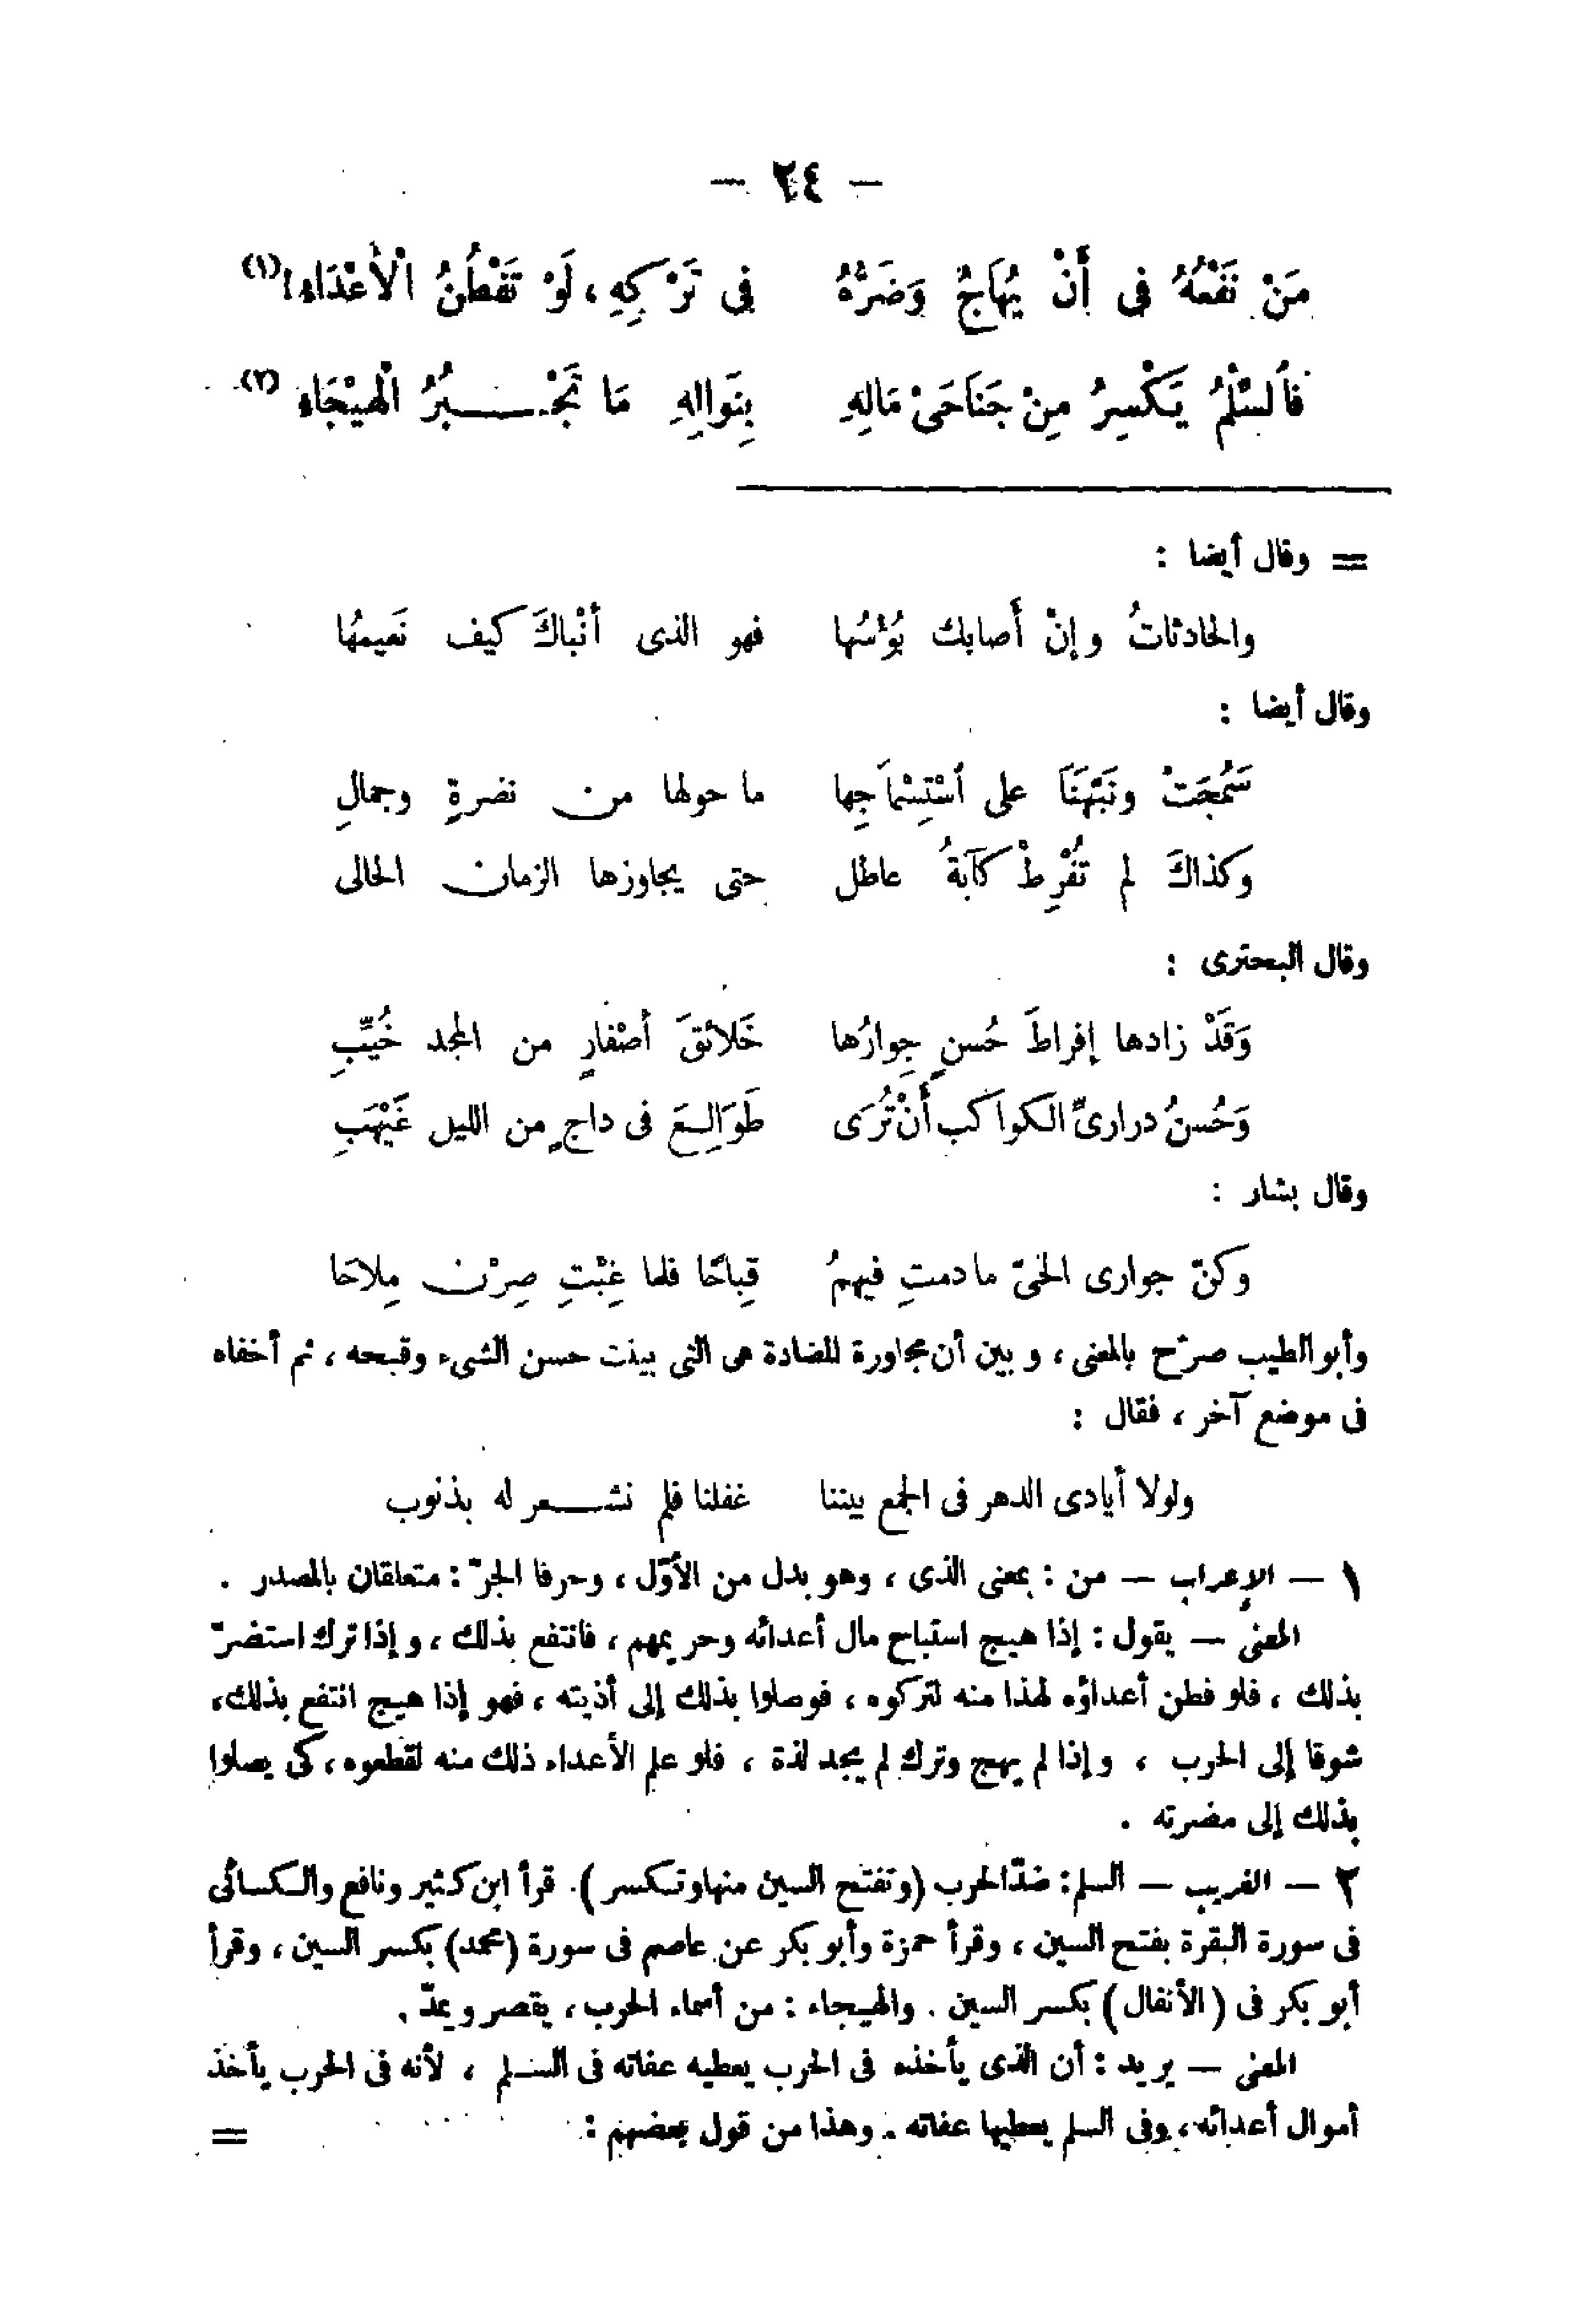 — ٢٤ —
مَنْ نَفْعُهُ فى أَنْ يُهَاجُ وَضَرُّهُ فِى تَرْكِهِ، لَوْ تَفْطُنُ الْأَعْدَاءُ! (١)
فَالسَّلْمُ يَكْسِرُ مِنْ جَنَاحَىْ مَالِهِ بِنَوَالِهِ مَا تَجْـبُرُ الْهَيْجَاءِ (٢)
= وقال أيضا :
والحادثاتُ وإنْ أَصابك بُؤْسُها فهو الذى أنْباكَ كيف نَعيمُها
وقال أيضا :
سَمُجَتْ ونَبَّهَنَا على اُسْتِسْماَجِها ما حولها من نضرةٍ وجمالِ
وكذاكَ لم تُفْرِطْ كآبةُ عاطل حتى يجاوزها الزمان الخالى
وقال البحترى :
وَقَدْ زادها إفراطَ حُسنٍ جِوارُها خَلائقَ أصْفارٍ من المجد خُيَّبِ
وَحُسنُ درارىِّ الكواكب أَنْ تُرَى طَوَالِعَ فى داجٍ من الليل غَيْهَبِ
وقال بشار :
وكنّ جوارى الحَىّ ما دمتِ فيهمُ قِباحًا فلما غِبْتِ صِرْن مِلاحَا
وأبو الطيب صرّح بالمعنى ، وبين أن مجاورة المضادة هى التى بينت حسن الشىء وقبحه ، ثم أخفاه
فى موضع آخر ، فقال :
ولولا أيادى الدهر فى الجمع بيننا غفلنا فلم نشـعر له بذنوب
١ — الإعراب — من : بمعنى الذى ، وهو بدل من الأوّل ، وحرفا الجرّ : متعلقان بالمصدر .
المعنى — يقول : إذا هيج استباح مال أعدائه وحريمهم ، فانتفع بذلك ، وإذا ترك استضرّ
بذلك ، فلو فطن أعداؤه لهذا منه لتركوه ، فوصلوا بذلك إلى أذيته ، فهو إذا هيج انتفع بذلك،
شوقا إلى الحرب ، وإذا لم يهج وترك لم يجد لذة ، فلو علم الأعداء ذلك منه لقطعوه ، كى يصلوا
بذلك إلى مضرته .
٢ — الغريب — السلم : ضدّ الحرب (وتفتح السين منها وتكسر). قرأ ابن كثير ونافع والكسائى
فى سورة البقرة بفتح السين ، وقرأ حمزة وأبو بكر عن عاصم فى سورة (محمد) بكسر السين ، وقرأ
أبو بكر فى (الأنفال) بكسر السين . والهيجاء : من أسماء الحرب ، يقصر ويمدّ .
المعنى — يريد : أن الذى يأخذه فى الحرب يعطيه عفاته فى السـلم ، لأنه فى الحرب يأخذ
أموال أعدائه ، وفى السلم يعطيها عفاته . وهذا من قول بعضهم :
=